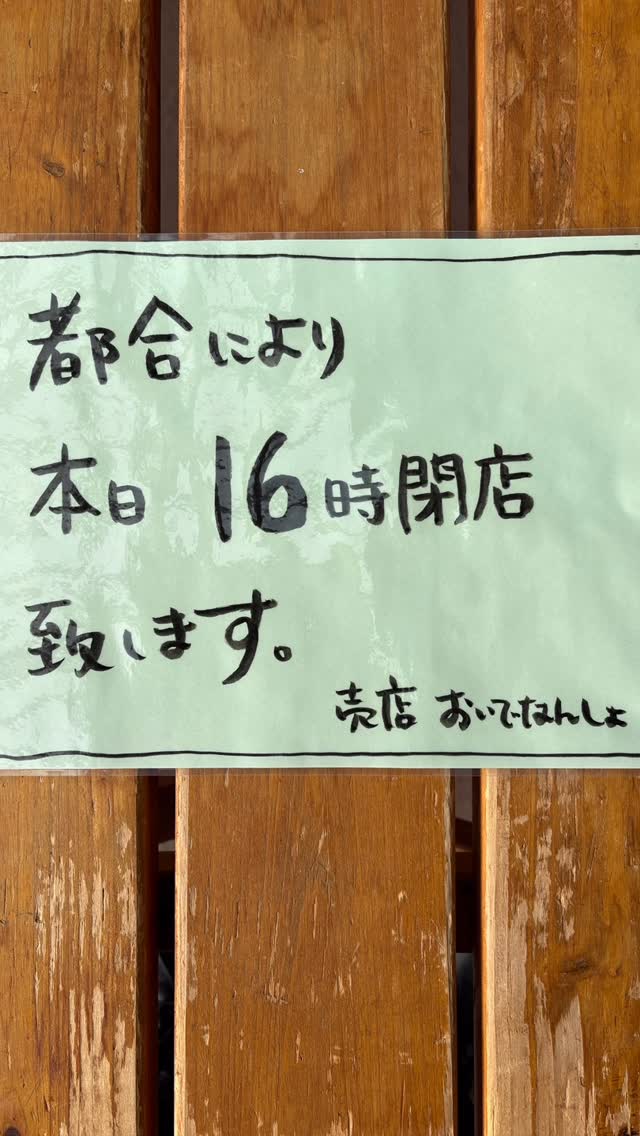 都合により
本日 16時閉店
致します。
売店 おいでなんしょ